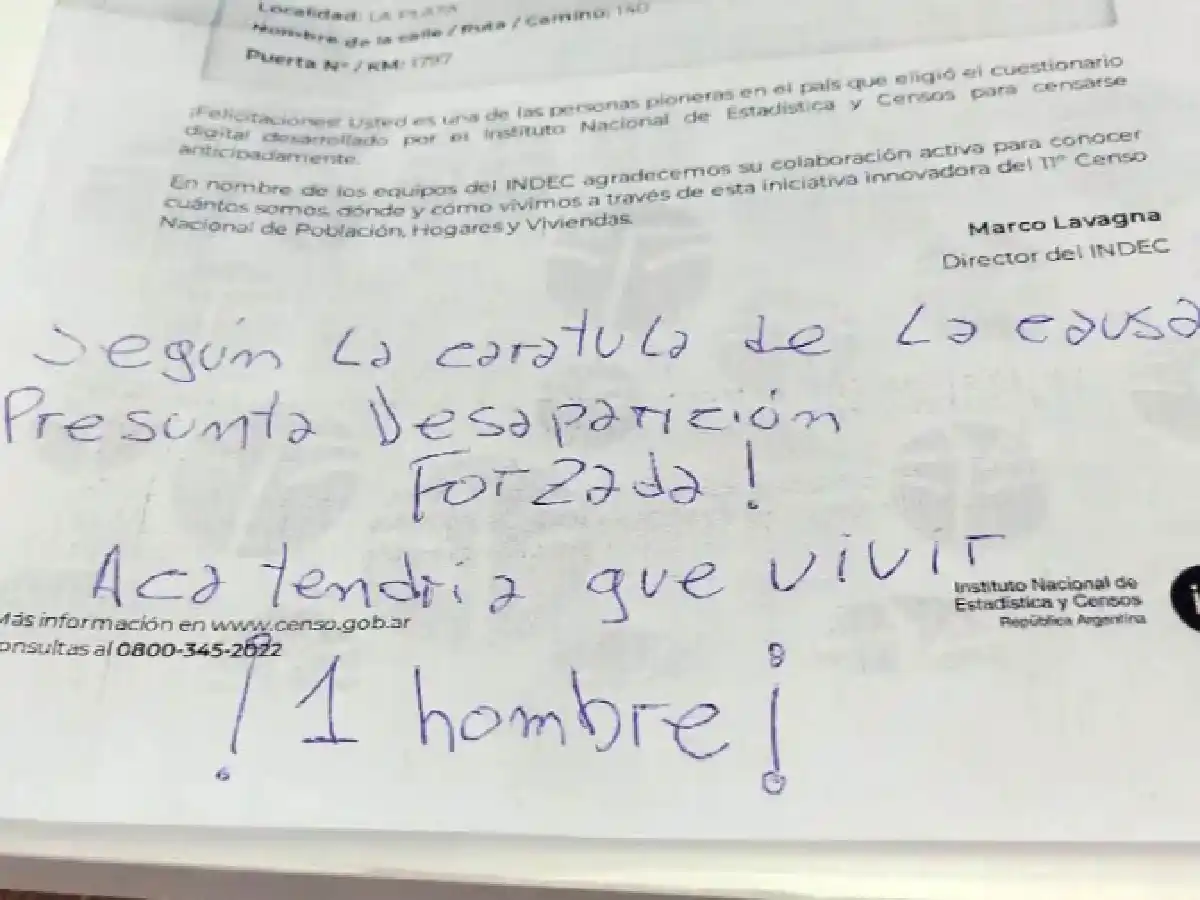 Localidad: LA PLATA
Nombre de la calle / Ruta / Camino: 140
Puerta Nº / KM: 1797
¡Felicitaciones! Usted es una de las personas pioneras en el país que eligió el cuestionario
digital desarrollado por el Instituto Nacional de Estadística y Censos para censarse
anticipadamente.
En nombre de los equipos del INDEC agradecemos su colaboración activa para conocer
cuántos somos, dónde y cómo vivimos a través de esta iniciativa innovadora del 11º Censo
Nacional de Población, Hogares y Viviendas.
Marco Lavagna
Director del INDEC
Según La caratula de La causa
Presunta Desaparición
Forzada!
Aca tendria que vivir
Instituto Nacional de
Estadística y Censos
República Argentina
Más información en www.censo.gob.ar
onsultas al 0800-345-2022
! 1 hombre ¡